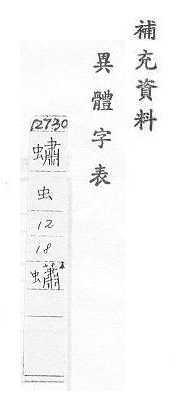 補充資料
異體字表
12730
蟰
虫
12
18
蠨